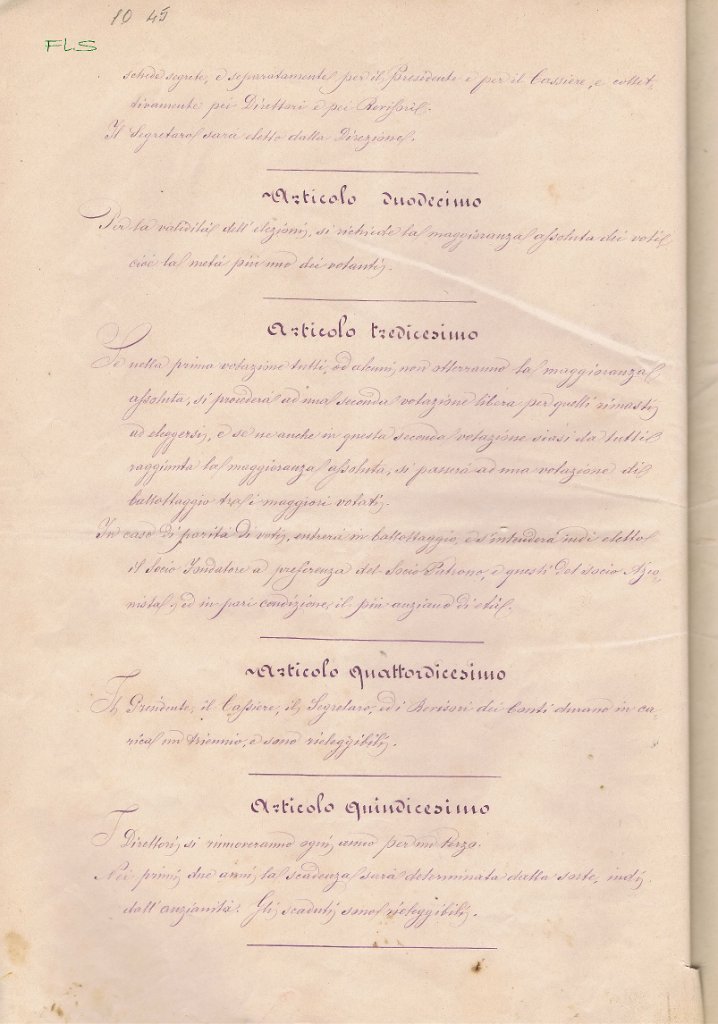 10 45
FLS
schede segrete, e separatamente per il Presidente e per il Cassiere, e collet-
tivamente pei Direttori e pei Revisori.
Il Segretaro sarà eletto dalla Direzione.
Articolo duodecimo
Per la validità dell'elezioni, si richiede la maggioranza assoluta dei voti
cioè la metà più uno dei votanti.
Articolo tredicesimo
Se nella prima votazione tutti, od alcuni, non otterranno la maggioranza
assoluta, si procederà ad una seconda votazione libera per quelli rimasti
ad eleggersi, e se ne anche in questa seconda votazione siasi da tutti
raggiunta la maggioranza assoluta, si passerà ad una votazione di
ballottaggio tra i maggiori votati.
In caso di parità di voti, entrerà in ballottaggio, e s'intenderà indi eletto
il socio Fondatore a preferenza del Socio Patrono, e questi del socio Azio-
nista, ed in pari condizione, il più anziano di età.
Articolo quattordicesimo
Il Presidente, il Cassiere, il Segretaro, ed i Revisori dei Conti durano in ca-
rica un triennio, e sono rieleggibili.
Articolo quindicesimo
I Direttori si rinnoveranno ogni anno per un terzo.
Nei primi due anni la scadenza sarà determinata dalla sorte, indi
dall'anzianità. Gli scaduti sono rieleggibili.